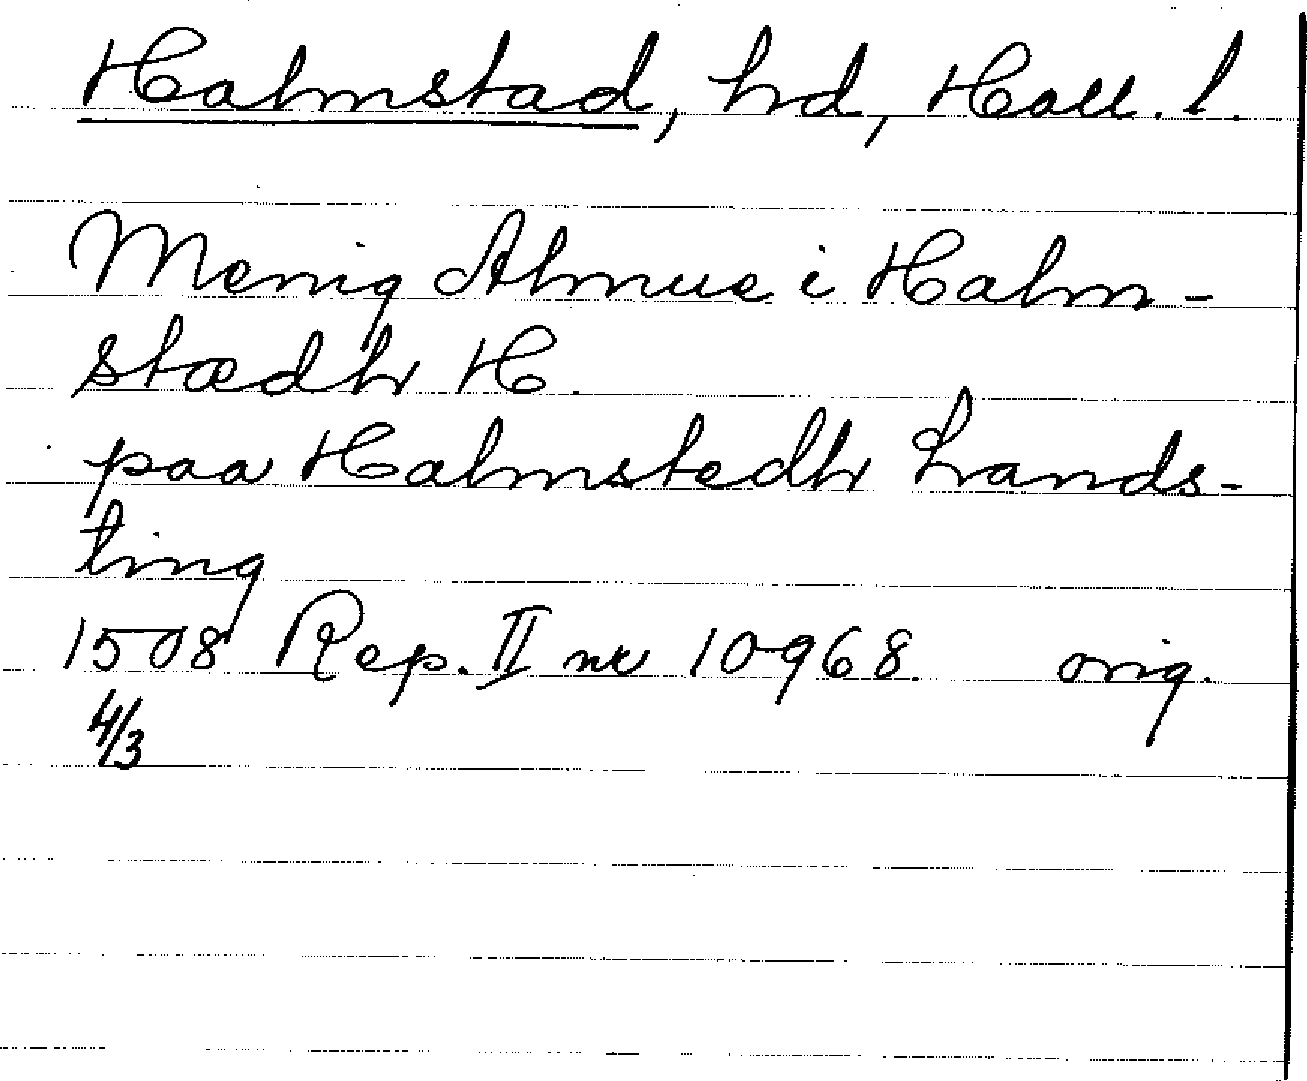 Halmstad, hd, Hall. l.
Menig Almue i Halm-
stædh H.
paa Halmstedh Lands-
ting
1508 Rep. II nr 10968. orig.
4/3